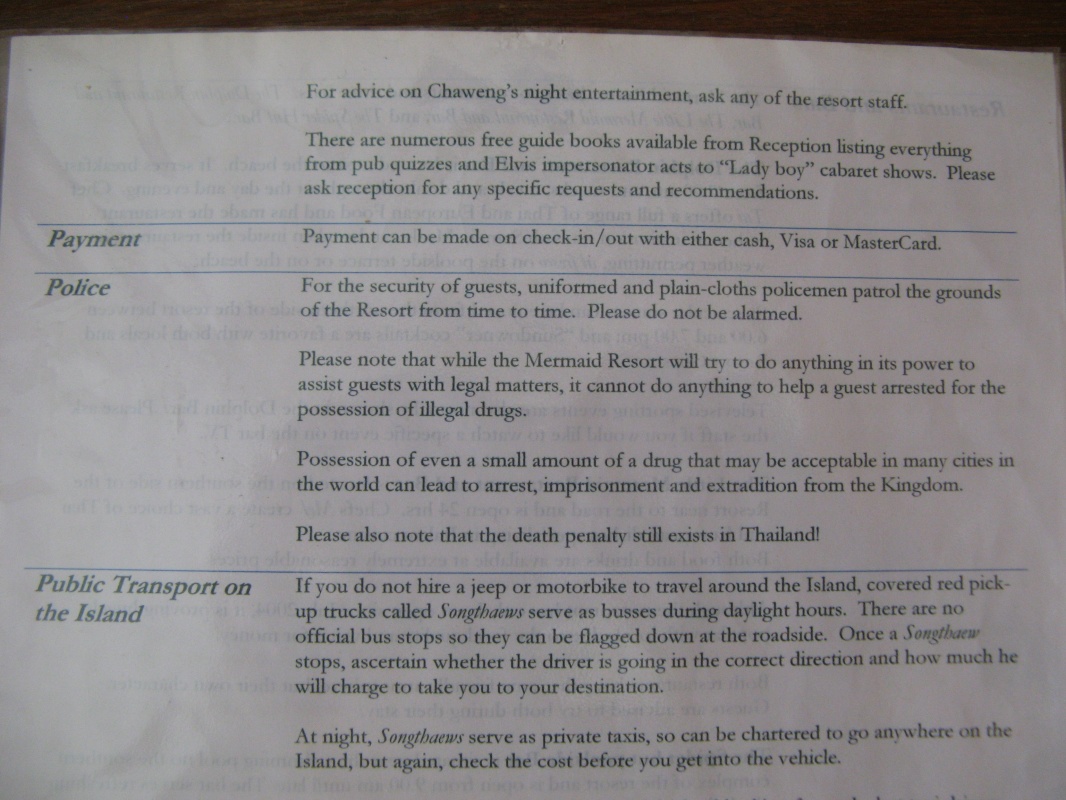 For advice on Chaweng's night entertainment, ask any of the resort staff.
There are numerous free guide books available from Reception listing everything
from pub quizzes and Elvis impersonator acts to "Lady boy" cabaret shows. Please
ask reception for any specific requests and recommendations.
Payment Payment can be made on check-in/out with either cash, Visa or MasterCard.
Police For the security of guests, uniformed and plain-cloths policemen patrol the grounds
of the Resort from time to time. Please do not be alarmed.
Please note that while the Mermaid Resort will try to do anything in its power to
assist guests with legal matters, it cannot do anything to help a guest arrested for the
possession of illegal drugs.
Possession of even a small amount of a drug that may be acceptable in many cities in
the world can lead to arrest, imprisonment and extradition from the Kingdom.
Please also note that the death penalty still exists in Thailand!
Public Transport on If you do not hire a jeep or motorbike to travel around the Island, covered red pick-
the Island up trucks called Songthaews serve as busses during daylight hours. There are no
official bus stops so they can be flagged down at the roadside. Once a Songthaew
stops, ascertain whether the driver is going in the correct direction and how much he
will charge to take you to your destination.
At night, Songthaews serve as private taxis, so can be chartered to go anywhere on the
Island, but again, check the cost before you get into the vehicle.